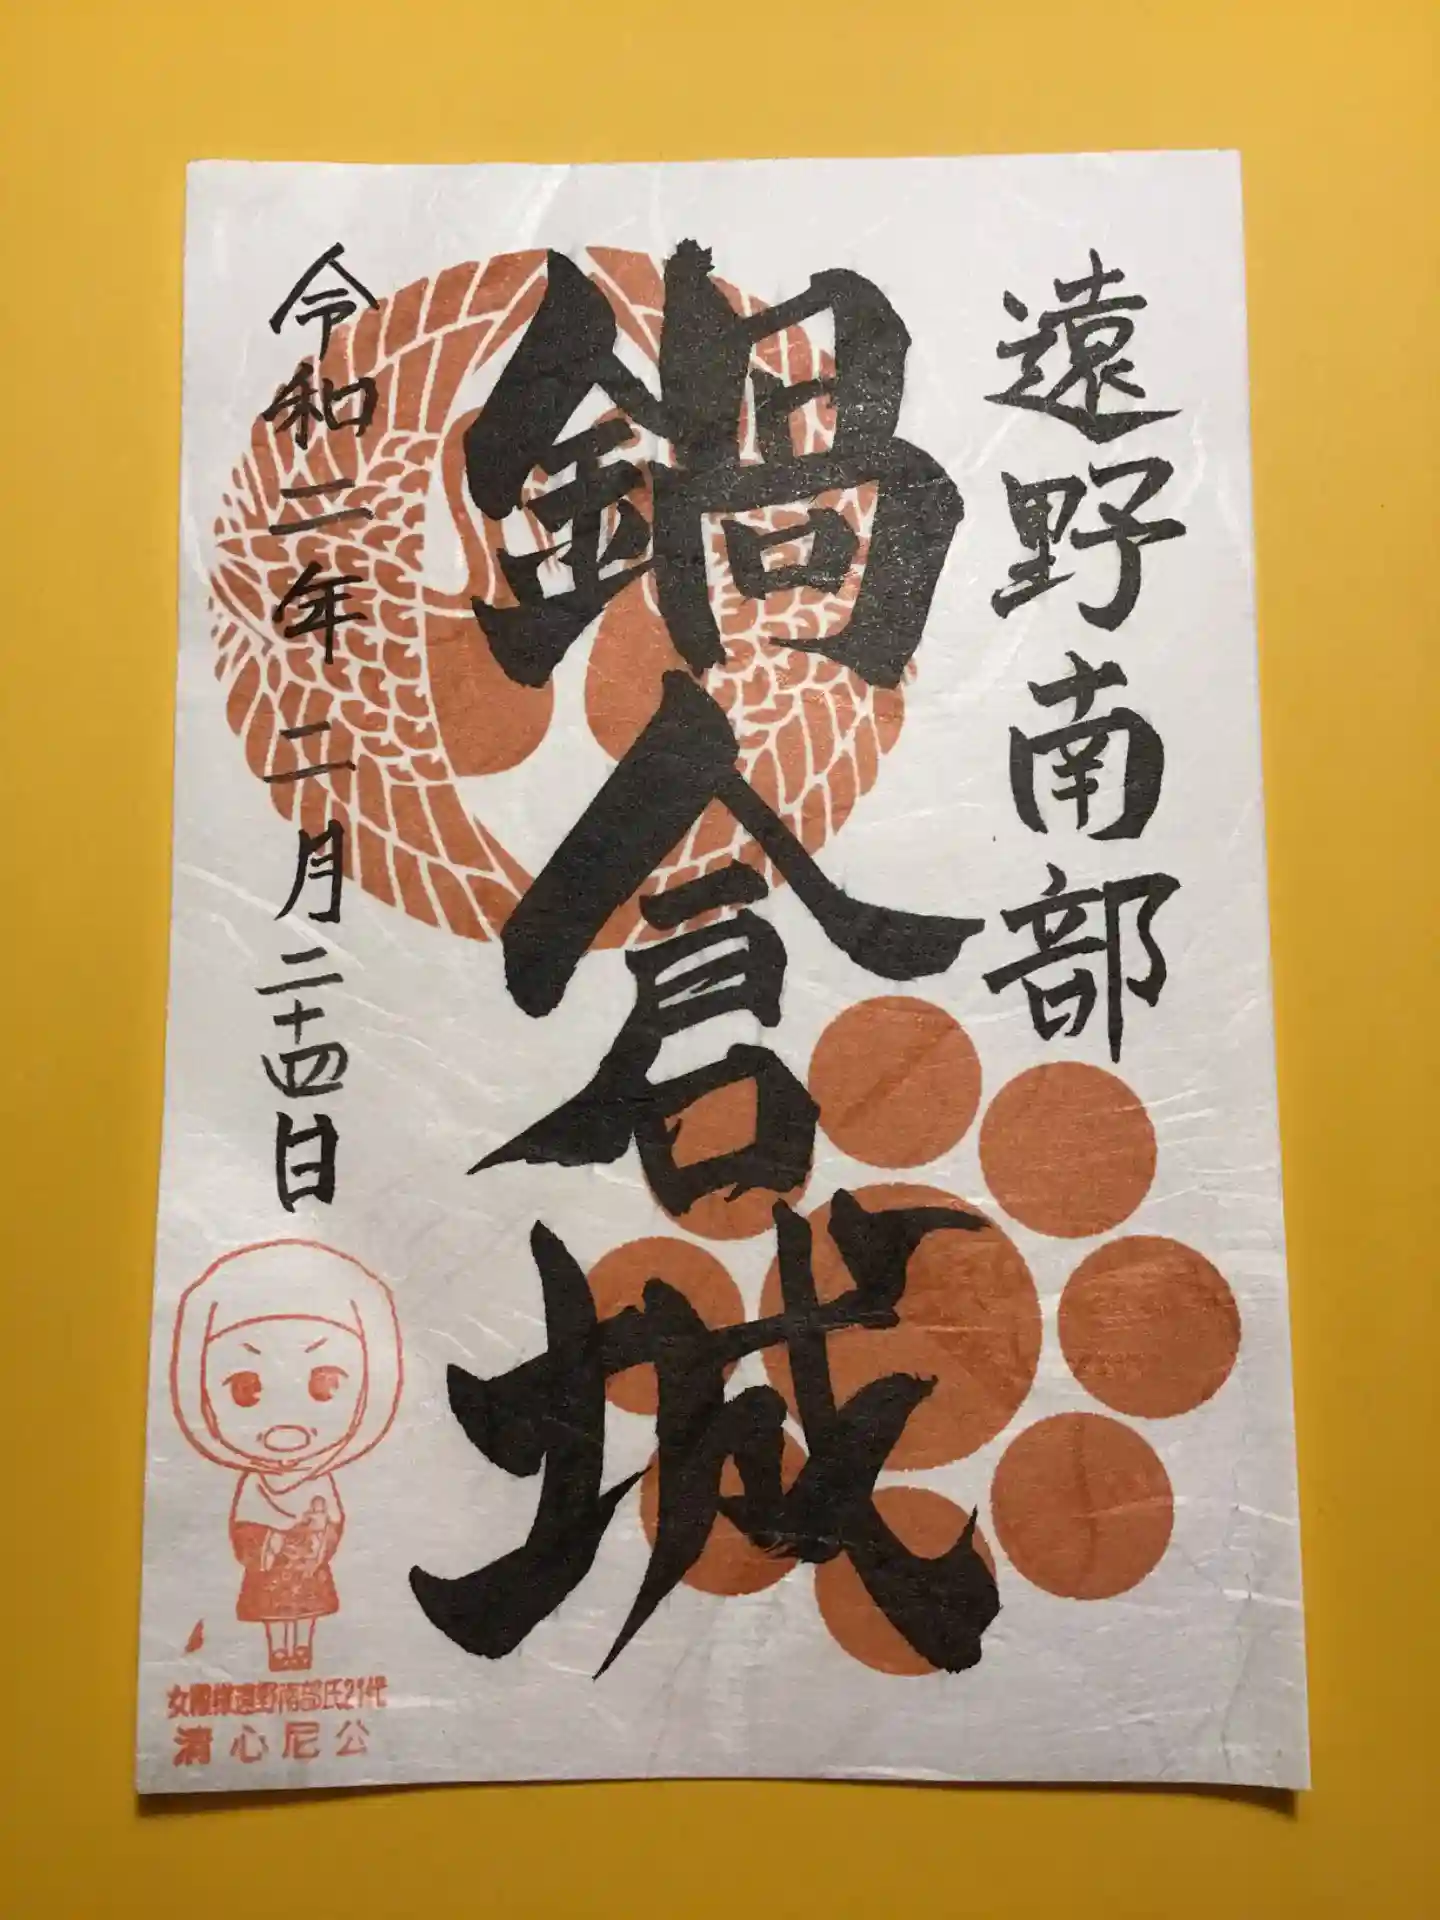 遠野南部
鍋倉城
令和二年二月二十四日
女殿様遠野南部氏21代
清心尼公